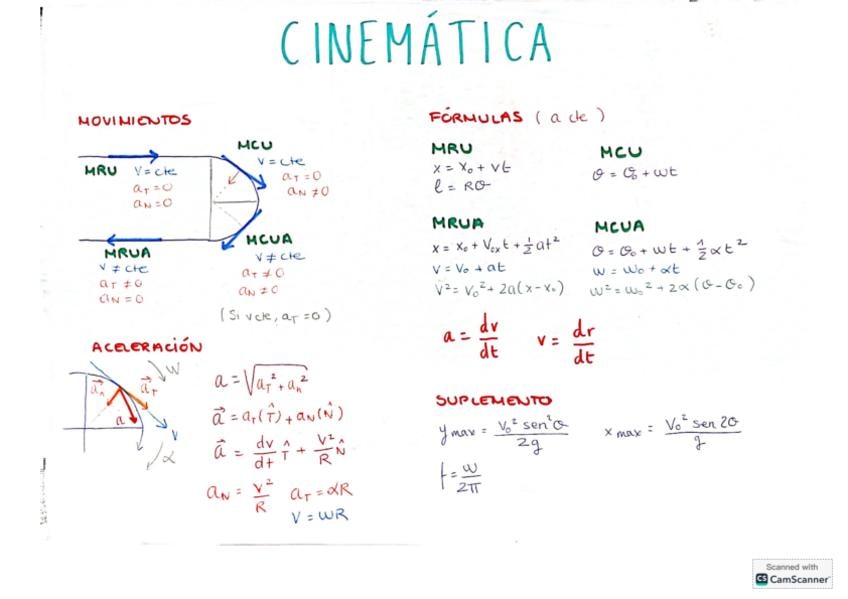 CINEMÁTICA
MOVIMIENTOS
MRU
V = cte
a_T = 0
a_N = 0
MCU
V = cte
a_T = 0
a_N ≠ 0
MRUA
V ≠ cte
a_T ≠ 0
a_N = 0
MCUA
V ≠ cte
a_T ≠ 0
a_N ≠ 0
(Si v cte, a_T = 0)
ACELERACIÓN
a⃗_n
a⃗_T
W
a
v
α
a = √(a_T² + a_n²)
a⃗ = a_T(T̂) + a_N(N̂)
a⃗ = dv/dt T̂ + V²/R N̂
a_N = V²/R a_T = αR
V = ωR
FÓRMULAS (a cte)
MRU
x = x₀ + vt
l = Rθ
MCU
θ = θ₀ + ωt
MRUA
x = x₀ + V₀ₓt + ½at²
v = v₀ + at
V² = V₀² + 2a(x - x₀)
MCUA
θ = θ₀ + ωt + ½αt²
ω = ω₀ + αt
ω² = ω₀² + 2α(θ - θ₀)
a = dv/dt v = dr/dt
SUPLEMENTO
y max = V₀² sen²θ/2g x max = V₀² sen 2θ/g
f = ω/2π
Scanned with
CS CamScanner